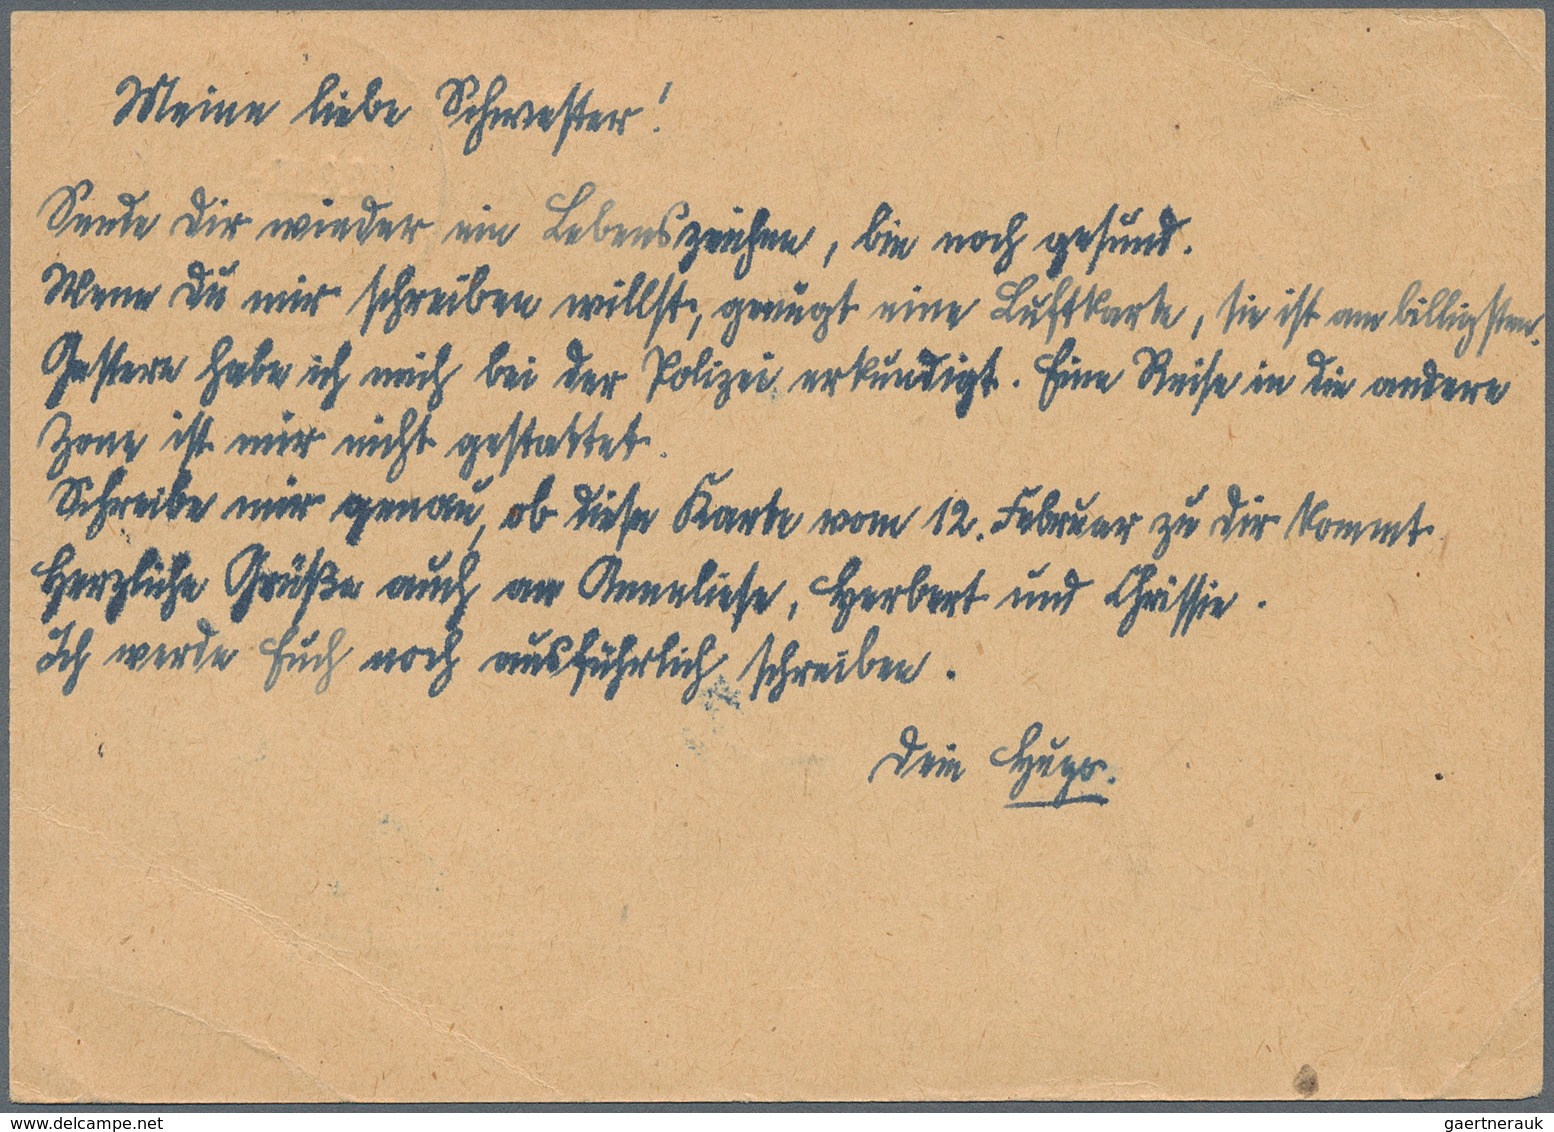 Meine liebe Schwester!
Sende Dir wieder ein Lebenszeichen, bin noch gesund.
Wenn Du mir schreiben willst, genügt eine Luftkarte, sie ist am billigsten.
Gestern habe ich mich bei der Polizei erkundigt. Eine Reise in die andere
Zone ist mir nicht gestattet.
Schreibe mir genau, ob diese Karte vom 12. Februar zu Dir kommt.
Herzliche Grüße auch an Anneliese, Herbert und Chrissie.
Ich werde Euch noch ausführlich schreiben.
Dein Hugo.
gaertnerauk @ delcampe.net